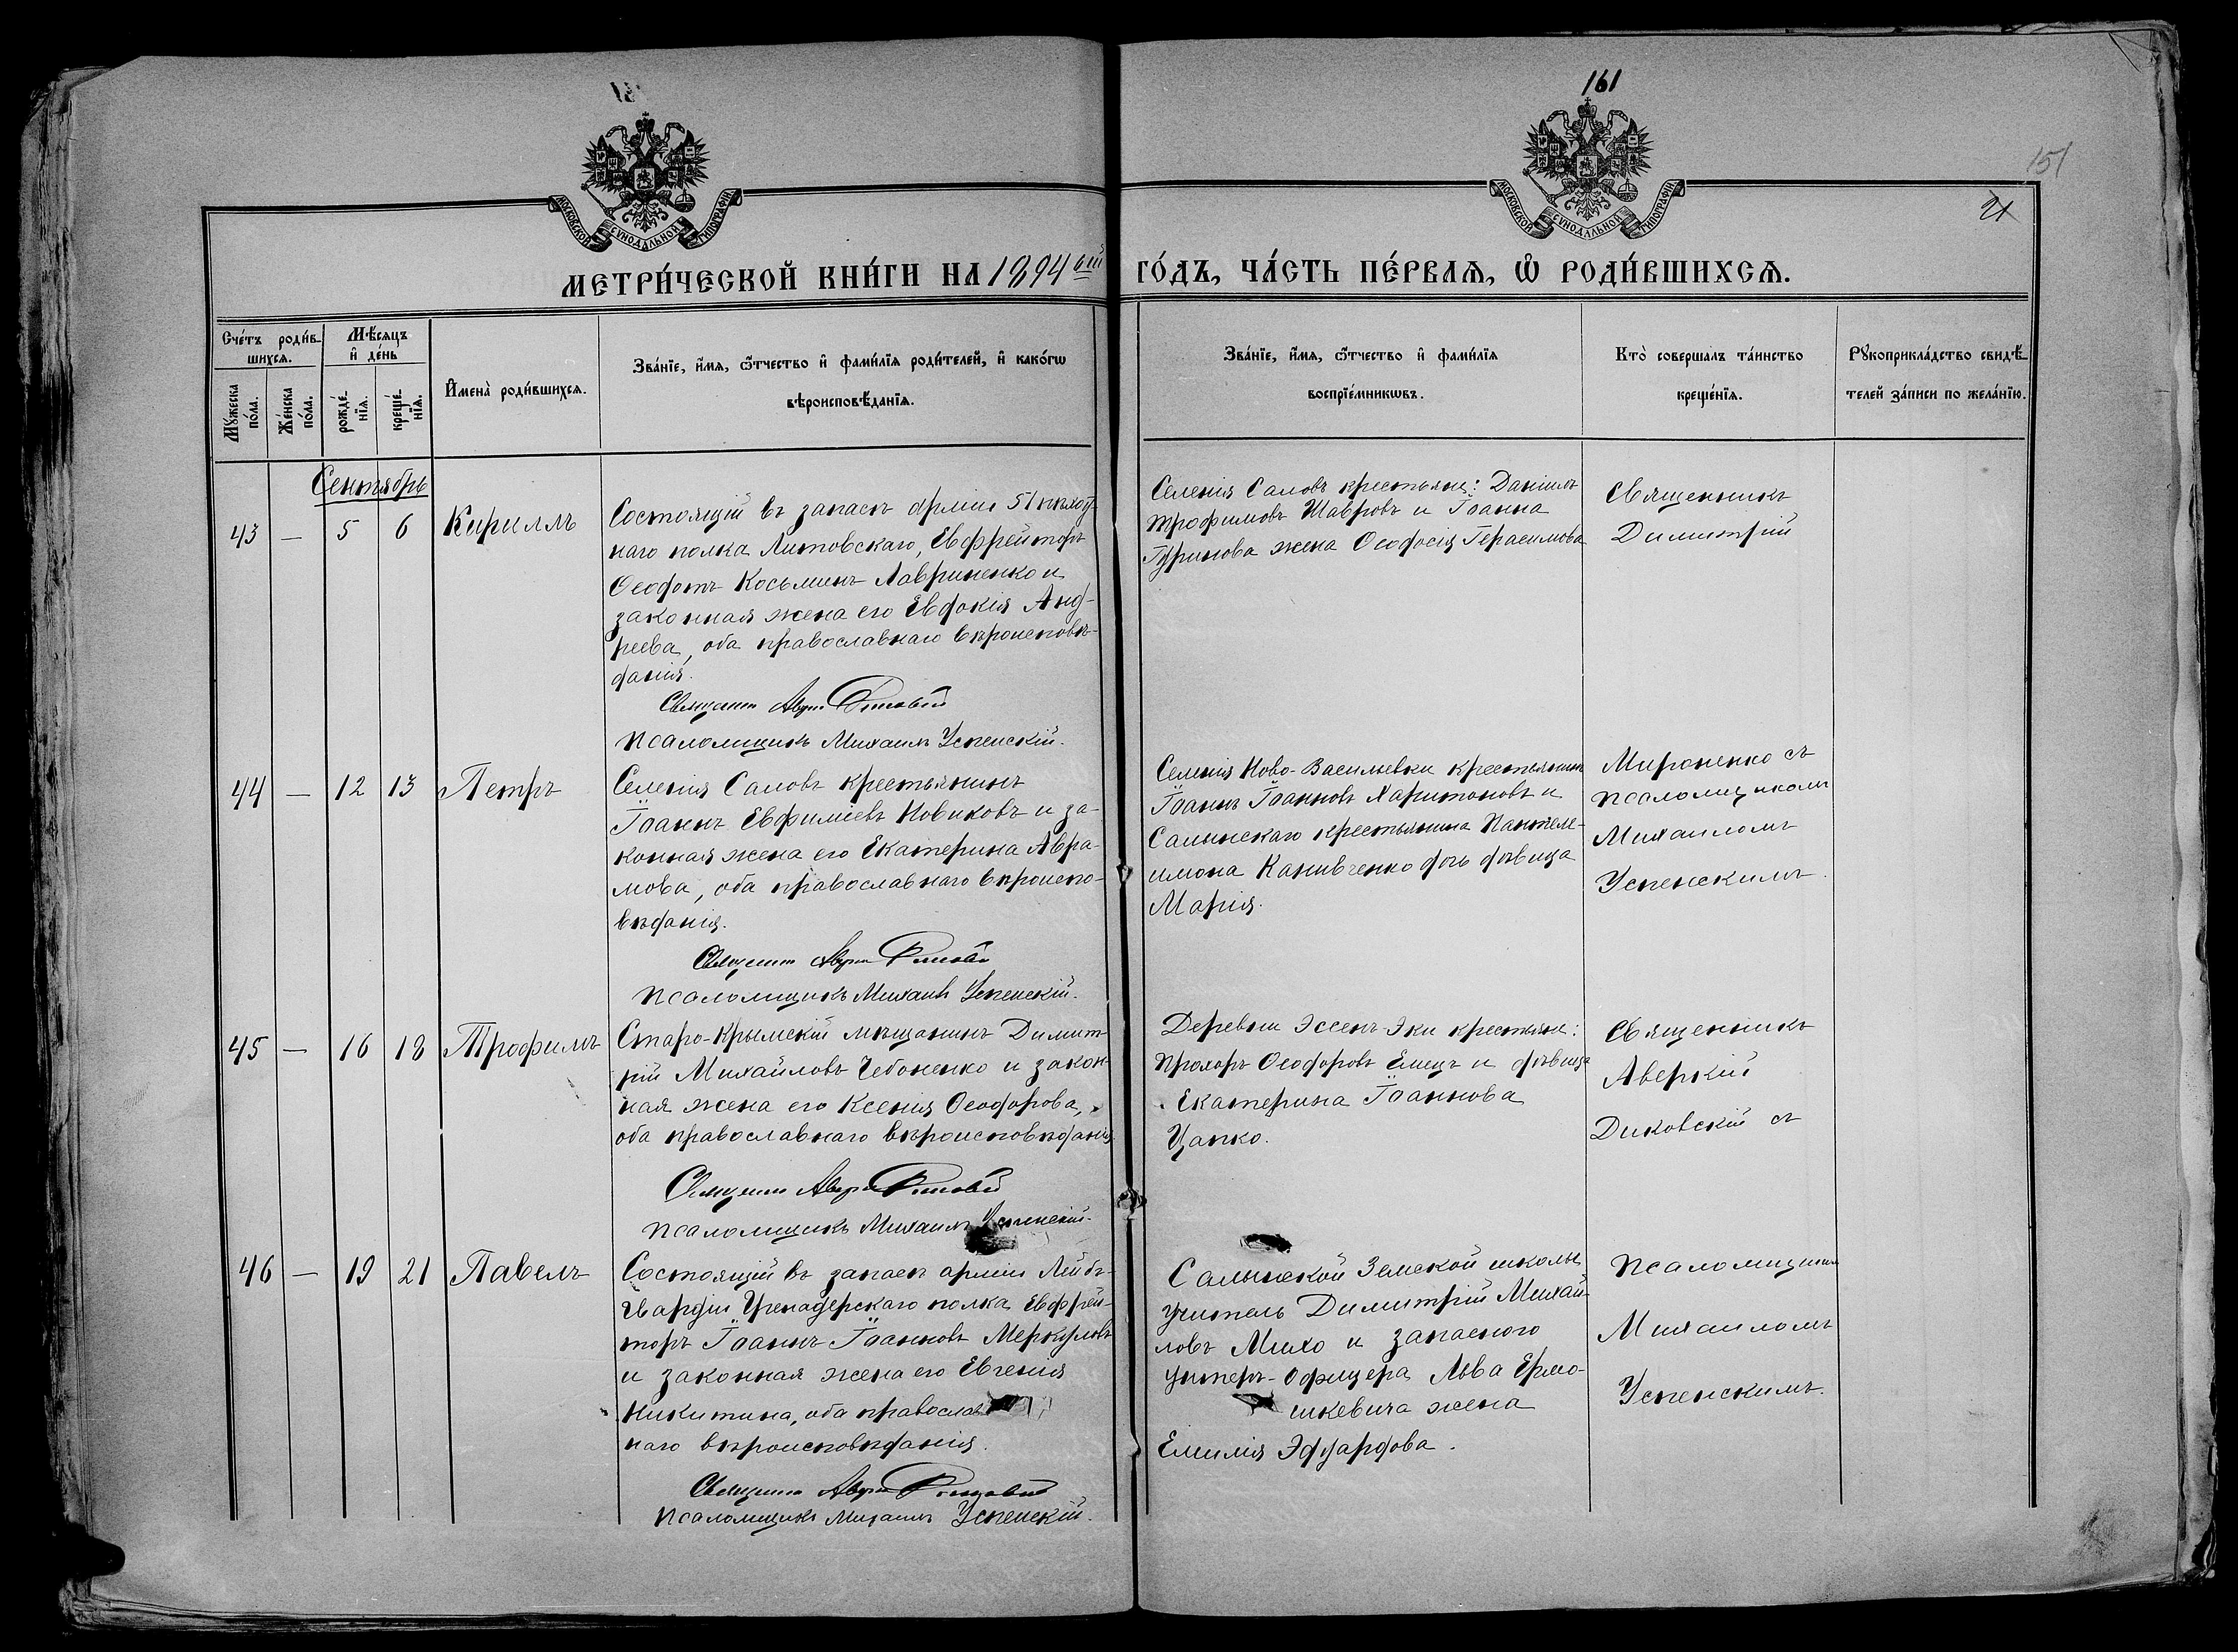 161
151
21
МОСКОВСКОЙ СѴНОДАЛЬНОЙ ТИПОГРАФІИ
МОСКОВСКОЙ СѴНОДАЛЬНОЙ ТИПОГРАФІИ
МЕТРИ́ЧЕСКОЙ КНИ́ГИ НА 1894ый ГО́ДЪ, ЧА́СТЬ ПЕ́РВАѦ, Ѡ РОДИ́ВШИХСѦ.
Сче́тъ роди́в-
шихсѧ.
Мꙋ́жеска по́ла.
Же́нска по́ла.
Мѣ́сѧцъ и де́нь
рожде́-нїѧ.
креще́-нїѧ.
И҆мена̀ роди́вшихсѧ.
Зва́нїе, и҆́мѧ, ѻ҆́тчество и҆ фами́лїѧ роди́телей, и҆ како́гѡ
вѣроисповѣ́данїѧ.
Зва́нїе, и҆́мѧ, ѻ҆́тчество и҆ фами́лїѧ
воспрїе́мникѡвъ.
Кто̀ совершалъ та́инство
креще́нїѧ.
Рꙋкоприкла́дство свидѣ́-
телей за́писи по жела́нїю.
Сентябрь
43 — 5 6 Кириллъ
Состоящій въ запасѣ арміи 51 пѣхот-
наго полка Литовскаго, Ефрейторъ
Ѳеодотъ Косьминъ Лавриненко и
законная жена его Евдокія Анд-
реева, оба православнаго вѣроисповѣ-
данія.
Священникъ Аверкій Диковскій
Псаломщикъ Михаилъ Успенскій.
Селенія Саловъ крестьяне: Даніилъ
Трофимовъ Шавровъ и Іоанна
Гуринова жена Ѳеодосія Герасимова
Священникъ
Димитрій
44 — 12 13 Петръ
Селенія Саловъ крестьянинъ
Іоаннъ Евфиміевъ Новиковъ и за-
конная жена его Екатерина Авра-
мова, оба православнаго вѣроиспо-
вѣданія.
Священникъ Аверкій Диковскій
Псаломщикъ Михаилъ Успенскій.
Селенія Ново-Васильевки крестьянинъ
Іоаннъ Іоанновъ Харитоновъ и
Салынскаго крестьянина Пантеле-
имона Канивченко дочь дѣвица
Марія.
Мироненко съ
псаломщикомъ
Михаиломъ
Успенскимъ.
45 — 16 18 Трофимъ
Старо-Крымскій мѣщанинъ Димит-
рій Михайловъ Чебоненко и закон-
ная жена его Ксенія Ѳеодорова,
оба православнаго вѣроисповѣданія
Священникъ Аверкій Диковскій
Псаломщикъ Михаилъ Успенскій.
Деревни Эссенъ-Эки крестьяне:
Прохоръ Ѳеодоровъ Емецъ и дѣвица
Екатерина Іоаннова
Цапко.
Священникъ
Аверкій
Диковскій съ
46 — 19 21 Павелъ
Состоящій въ запасѣ арміи Лейбъ-
Гвардіи Гренадерскаго полка Ефрей-
торъ Іоаннъ Іоанновъ Меркуловъ
и законная жена его Евгенія
Никитина, оба православ
наго вѣроисповѣданія.
Священникъ Аверкій Диковскій
Псаломщикъ Михаилъ Успенскій.
Салынской Земской школы
учитель Димитрій Михай-
ловъ Михо и запасного
унтеръ-офицера Льва Ермо-
шкевича жена
Емилія Эдуардова.
Псаломщикомъ
Михаиломъ
Успенскимъ.